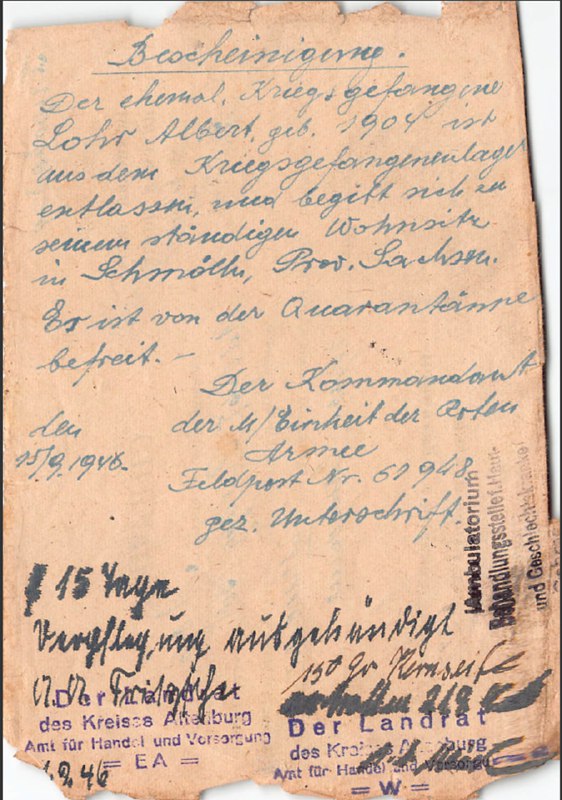 Bescheinigung.
Der ehemal. Kriegsgefangene
Lohr Albert, geb. 1904 ist
aus dem Kriegsgefangenenlager
entlassen, und begibt sich zu
seinem ständigen Wohnsitz
in Schmölln, Prov. Sachsen.
Er ist von der Quarantänne
befreit. –
Der Kommandant
der M/Einheit der Roten
Armee
den
15/9. 1946.
Feldpost Nr. 61948
gez. Unterschrift.
Ambulatorium
Behandlungsstelle f. Haut-
und Geschlechtskranke
15 Tage
Verpflegung ausgehändigt
150 Gr Kernseife
Der Landrat
des Kreises Altenburg
Amt für Handel und Versorgung
= EA =
Der Landrat
des Kreises Altenburg
Amt für Handel und Versorgung
= W =